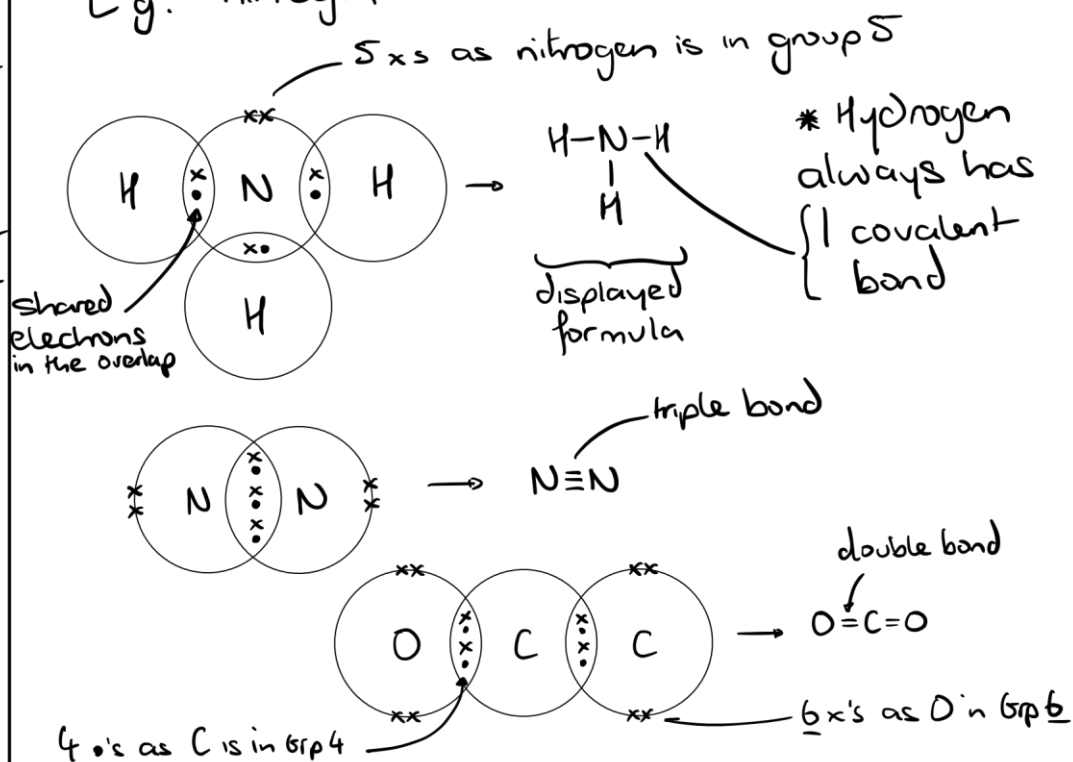 Eg.
5 xs as nitrogen is in group 5
H N H
H
shared
electrons
in the overlap
H-N-H
H
displayed
formula
* Hydrogen
always has
1 covalent
bond
N N
N≡N
triple bond
O C C
O=C=O
double bond
4 •'s as C is in Grp 4
6 x's as O in Grp 6